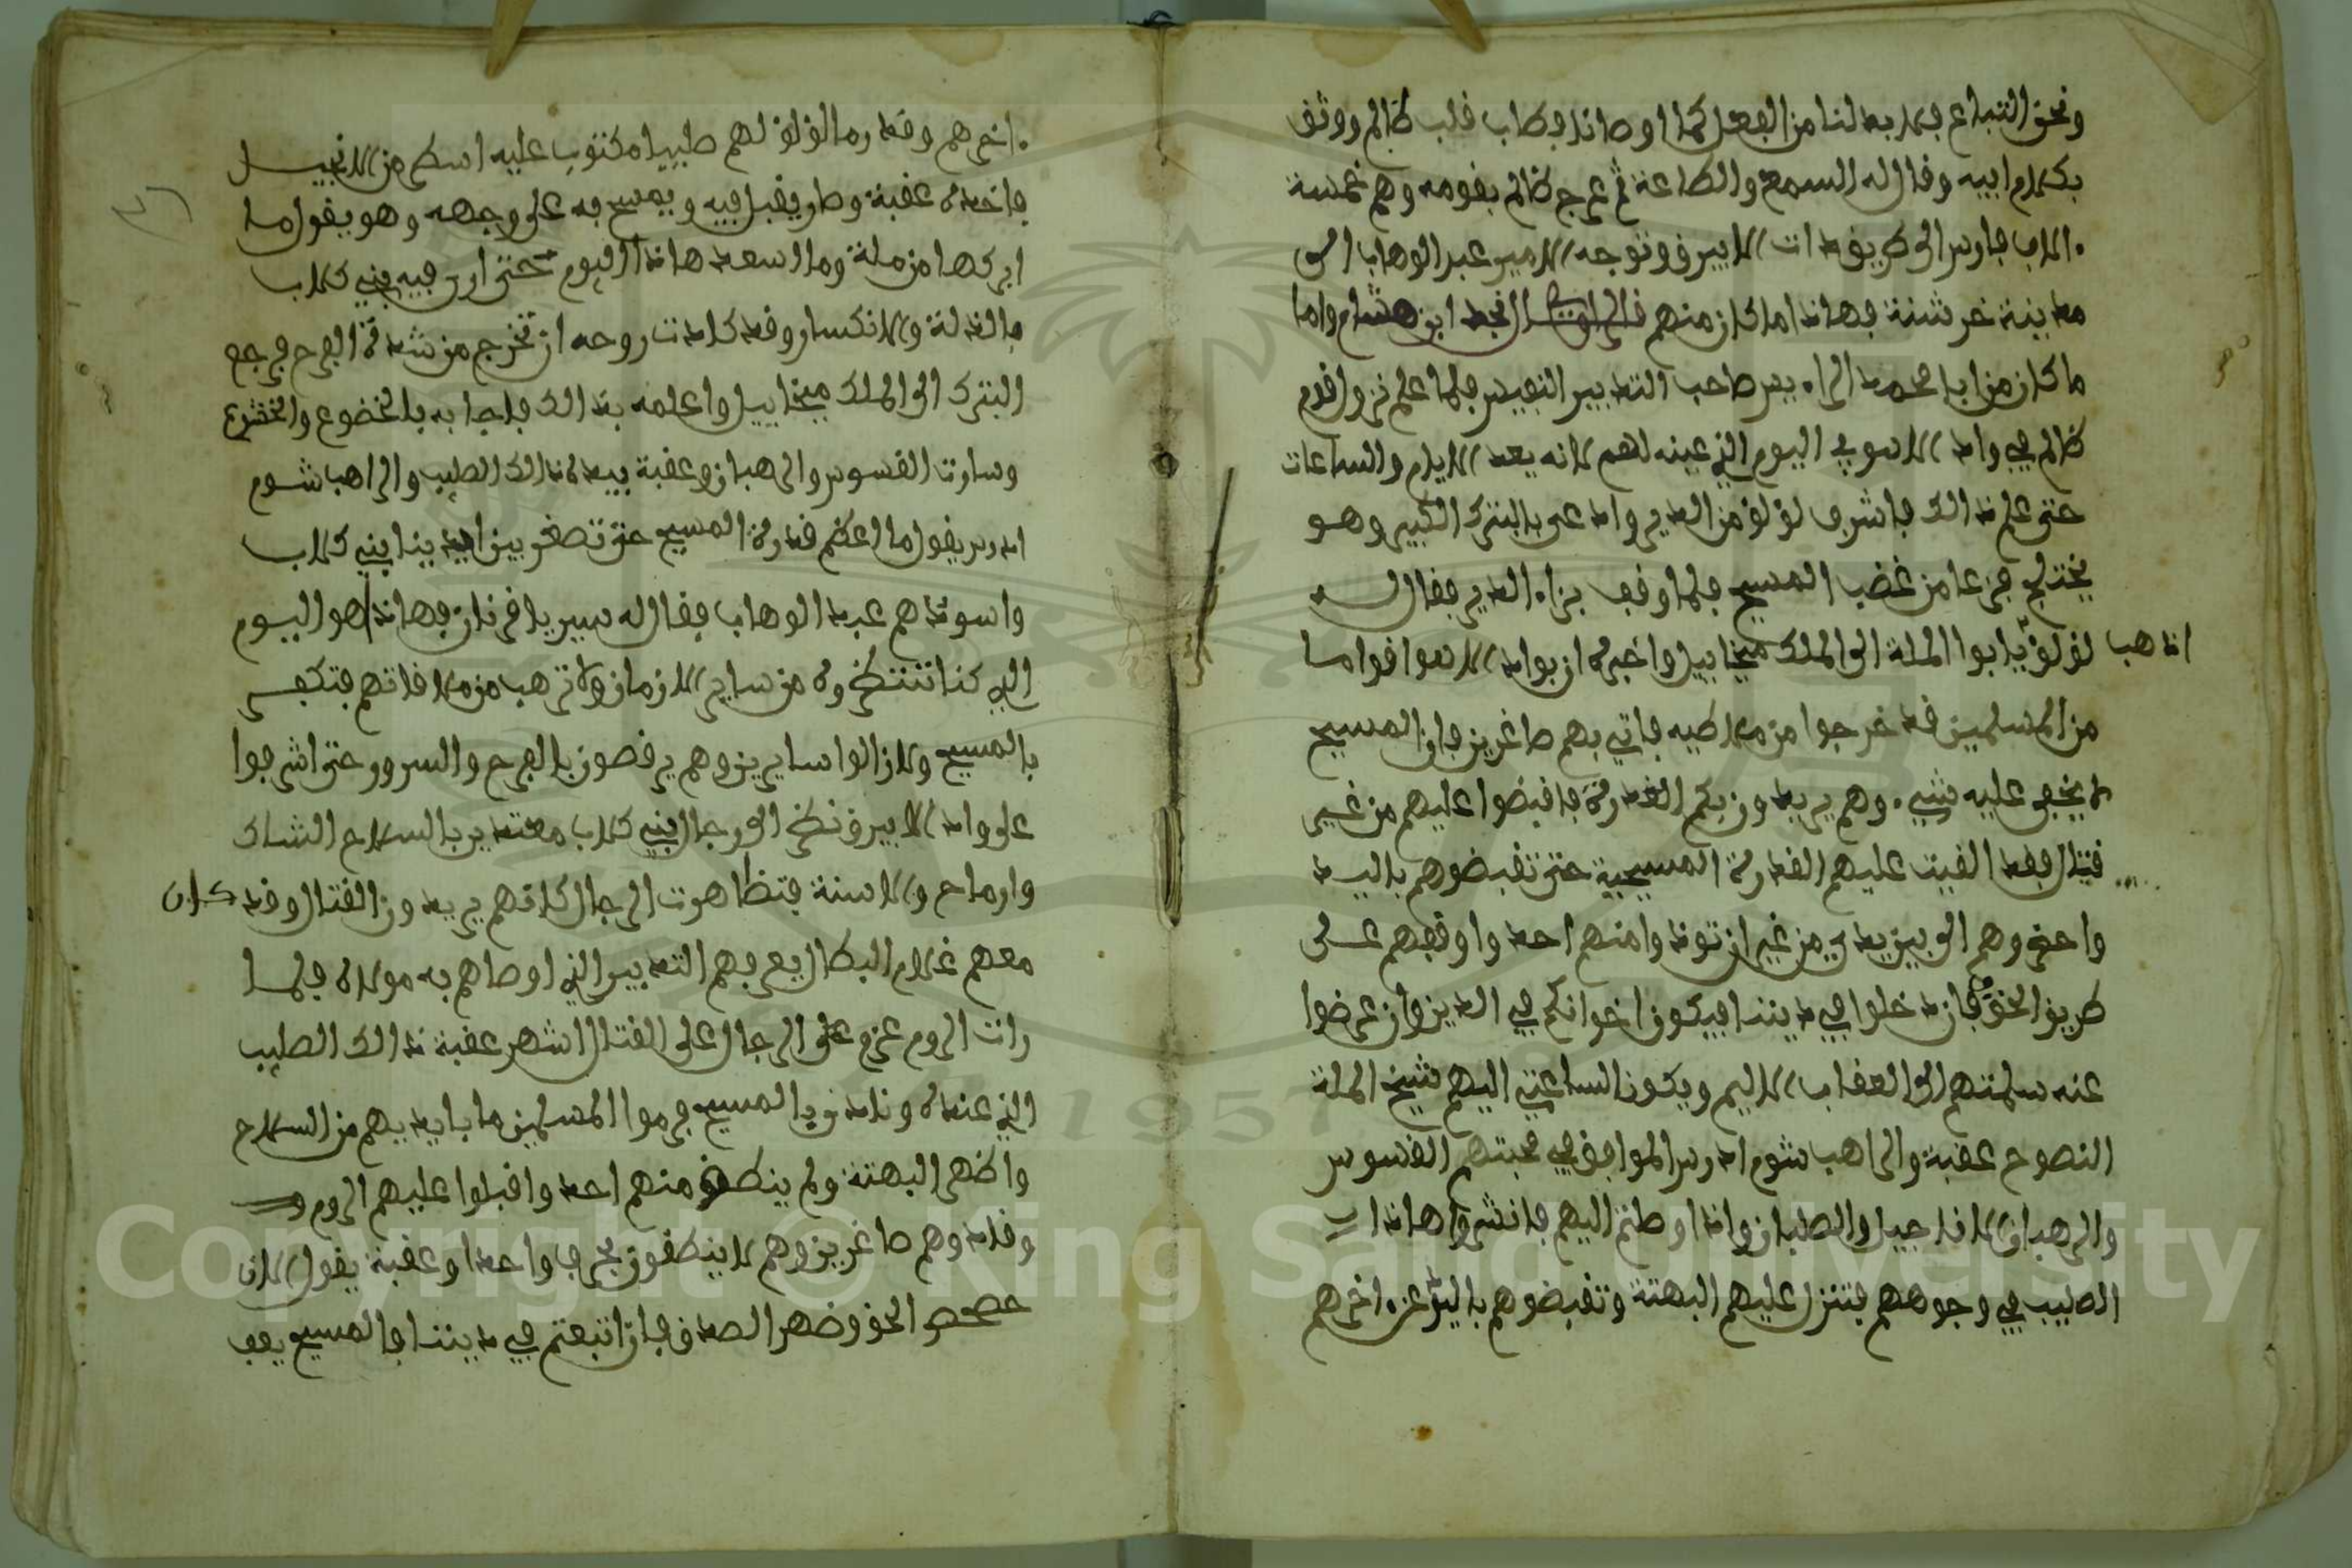 ونحن التباع فلابد لنا من الفعل كما اوصانا فطاب قلب ظالم ووثق
بكلام ابيه وقال له السمع والطاعة ثم عرج ظالم بقومه وهم خمسة
الاف فارس الى طريق ذات الابيرق وتوجه الامير عبد الوهاب الى
مدينة خرشنة فهاذا ما كان منهم قال الراوي النجد ابن هشام واما
ما كان من ابا محمد الراء يس صاحب التدبير النفيس فلما علم نزول قوم
ظالم في واد الاسود في اليوم الذي عينه لهم لانه يعد الايام والساعات
حتى علم ذالك فاشرف لؤلؤ من الدير وادعى بالبترك الكبير وهو
يختلج جزعا من غضب المسيح فلما وقف بزاء الدير فقال له
اذهب لؤلؤ يا ابوا الملة الى الملك ميخاييل واخبره ان بواد الاسود اقواما
من المسلمين قد خرجوا من ملاطيه فاتي بهم صاغرين فان المسيح
لا يخفى عليه شيء وهم يريدون بكم الغدرة فاقبضوا عليهم من غير
قتال فقد القيت عليهم القدرة المسيحية حتى تقبضوهم باليد
واحضروهم الى بين يدي من غير ان توذوا منهم احد واوقفهم على
طريق الحق فان دخلوا في ديننا فيكون اخوانكم في الدين وان عرضوا
عنه سلمتهم الى العقاب الاليم ويكون الساعي اليهم شيخ الملة
النصوح عقبة والراهب شوم ادرس الموافق في محبتهم القسوس
والرهبان الاناجيل والصلبان واذا وصلتم اليهم فانشروا هاذا
الصليب في وجوههم فتنزل عليهم البهتة وتقبضوهم باليد عن اخرهم
اخرهم وقد رما لؤلؤ لهم صليبا مكتوب عليه اسطر من الانجيل
فاخذه عقبة وصار يقبل فيه ويمسح به على وجهه وهو يقول ما
ابركها من ملة وما اسعد هاذا اليوم حتى ارى فيه بني كلاب
بالذلة والانكسار وقد كادت روحه ان تخرج من شدة الفرح فرجع
البترك الى الملك ميخاييل واعلمه بذالك فاجابه بالخضوع والخشوع
وسارت القسوس والرهبان وعقبة بيده ذالك الصليب والراهب شوم
ادرس يقول ما اعظم قدرة المسيح حتى تصغر بين ايدينا بني كلاب
واسودهم عبد الوهاب فقال له سير يا قرنان فهاذا هو اليوم
الذي كنا ننتظروه من ساير الازمان ولا ترهب من ملاقاتهم فتكفر
بالمسيح ولا زالوا سايرين وهم يرقصون بالفرح والسرور حتى اشرفوا
على واد الابيرق نظر الى رجال بني كلاب معتدين بالسلاح الشاك
وارماح والاسنة فتظاهرت الرجال كانهم يريدون القتال وقد كان
معهم غلام البطال يعرفهم التدبير الذي اوصاهم به مولاه فلما
رات الروم عزم على الرجال على القتال اشهر عقبة ذالك الصليب
الذي عنده ونادى يا المسيح فرموا المسلمين ما بايديهم من السلاح
واظهر البهتة ولم ينطق منهم احد واقبلوا عليهم الروم
وقادوهم صاغرين وهم لا ينطقون بحرف واحد وعقبة يقول الان
حصحص الحق وضهر الصدق فان اتبعتم في ديننا فالمسيح يعف